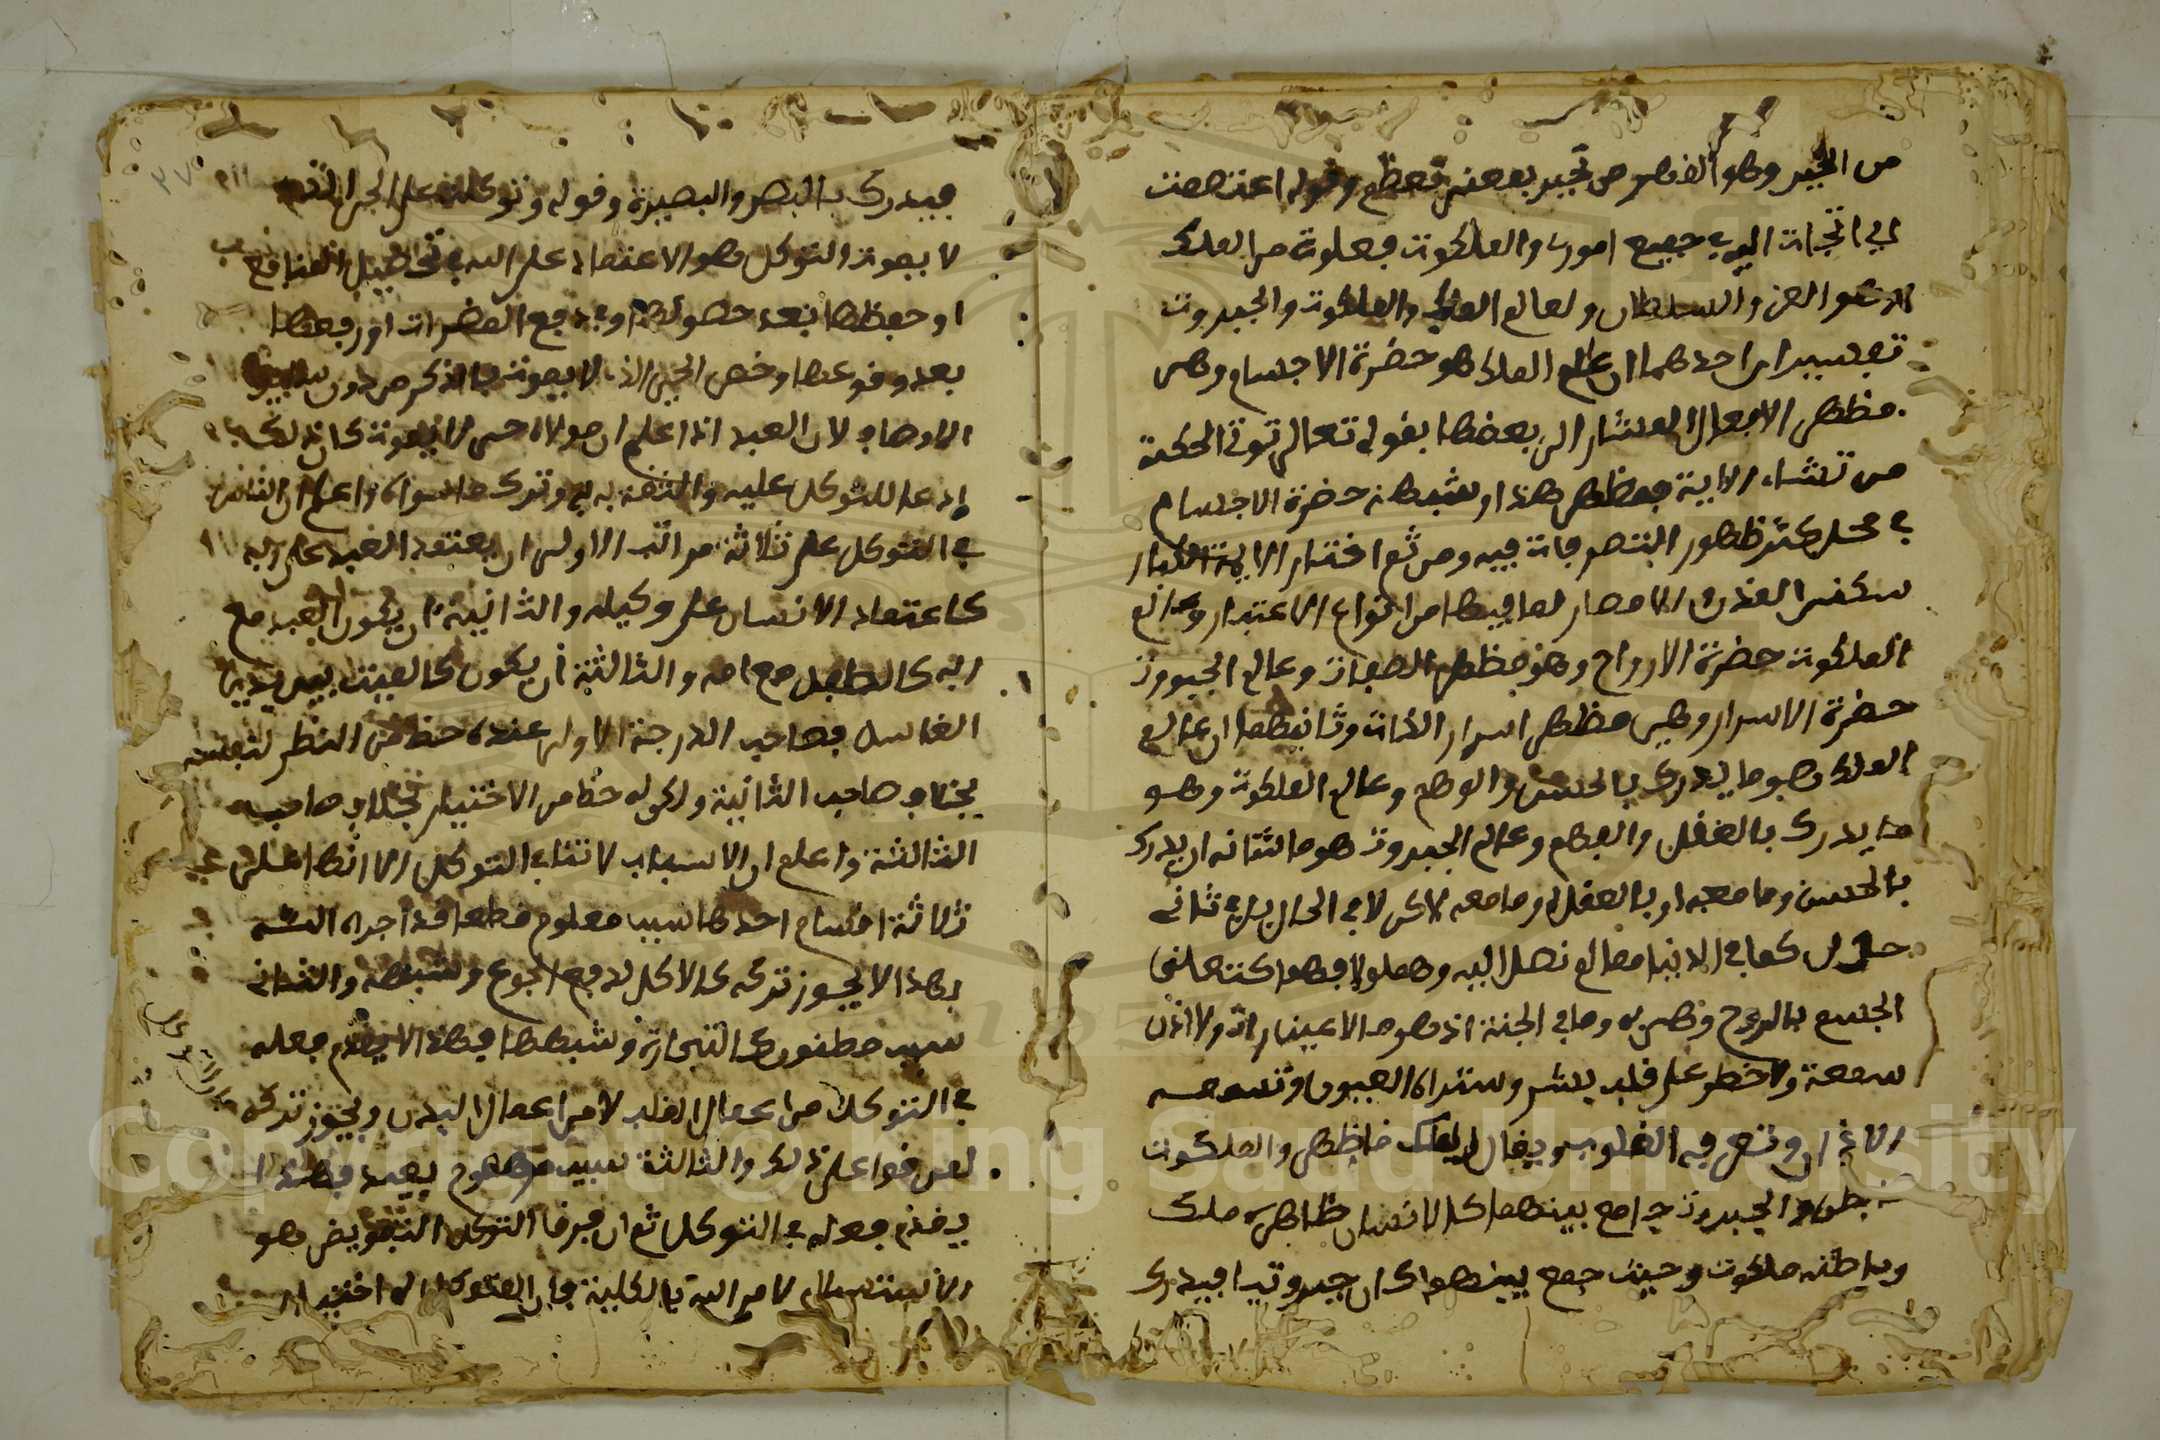 من الجبر وهو القهر من تجبر بمعنى تعظم وقوله اعتصمت
اي التجات اليه في جميع اموري والملكوت فعلوت من الملك
العز والسلطان ولعالم الملك والملكوت والجبروت
تفسيران احدهما ان عالم الملك هو حضرة الاجسام وهي
مظهر الافعال المشار الى بعضها بقوله تعالى توتي الحكمة
من تشاء الاية فمظهر هذا وشبهه حضرة الاجسام
في محل كثر ظهور التصرفات فيه ومن ثم اختار الايمة
سكنى المدن الامصار لما فيها من انواع الاعتبار وعالم
الملكوت حضرة الارواح وهو مظهر الصفات وعالم الجبروت
حضرة الاسرار وهي مظهر اسرار الذات وثانيهما ان عالم
الملك هو ما يدرك بالحس والوهم وعالم الملكوت وهو
ما يدرك بالعقل والفهم وعالم الجبروت هو ما شانه ان يدرك
بالحس وما معه او بالعقل وما معه لاكن لا في الحال بل في ثاني
حال كما في الدنيا مما لم نصل اليه وهملولا فهما كتعلق
الجسم بالروح وما في الجنة اذ هو ما لا عين رات ولا اذن
سمعت ولا خطر على قلب بشر وستراه العيون وتسمعه
الاذان وتعيه القلوب ويقال الملك ما ظهر والملكوت
ما بطن والجبروت جامع بينهما كالانسان ظاهره ملك
وباطنه ملكوت وحيث جمع بينهما كان جبروتيا فيدرك
٣٧
فيدرك بالبصر والبصيرة وقوله وتوكلت على الحي الذي
لا يموت التوكل هو الاعتماد على الله في تحصيل المنافع
او حفظها بعد حصولها او في دفع المضرات او رفعها
بعد وقوعها وخص الحي الذي لا يموت بالذكر من دون
الاوصاف لان العبد اذا علم ان مولاه حي لا يموت كان ذلك
ادعا للتوكل عليه والثقة به وترك ما سواه واعلم ان الناس
في التوكل على ثلاثة مراتب الاولى ان يعتمد العبد على ربه
كاعتماد الانسان على وكيله والثانية ان يكون العبد مع
ربه كالطفل مع امه والثالثة ان يكون كالميت بين يدي
الغاسل فصاحب الدرجة الاولى عنده حظ من النظر لنفسه
بخلاف صاحب الثانية ولكن له حظ من الاختيار بخلاف صاحب
الثالثة واعلم ان الاسباب لا تنافي التوكل الا انها على
ثلاثة اقسام احدها سبب معلوم قطعا قد اجراه الله
فهذا لا يجوز تركه كالاكل لدفع الجوع وشبهه والثاني
سبب مظنون كالتجارة وشبهها فهذا لا يقدم فعله
في التوكل من اعمال القلب لا من اعمال البدن ويجوز تركه
لمن قوا على ذلك والثالثة سبب موهوم بعيد فهذا
يقدم فعله في التوكل ثم ان فوق التوكل التفويض وهو
الاستسلام لامر الله بالكلية فان المتوكل له اختيار